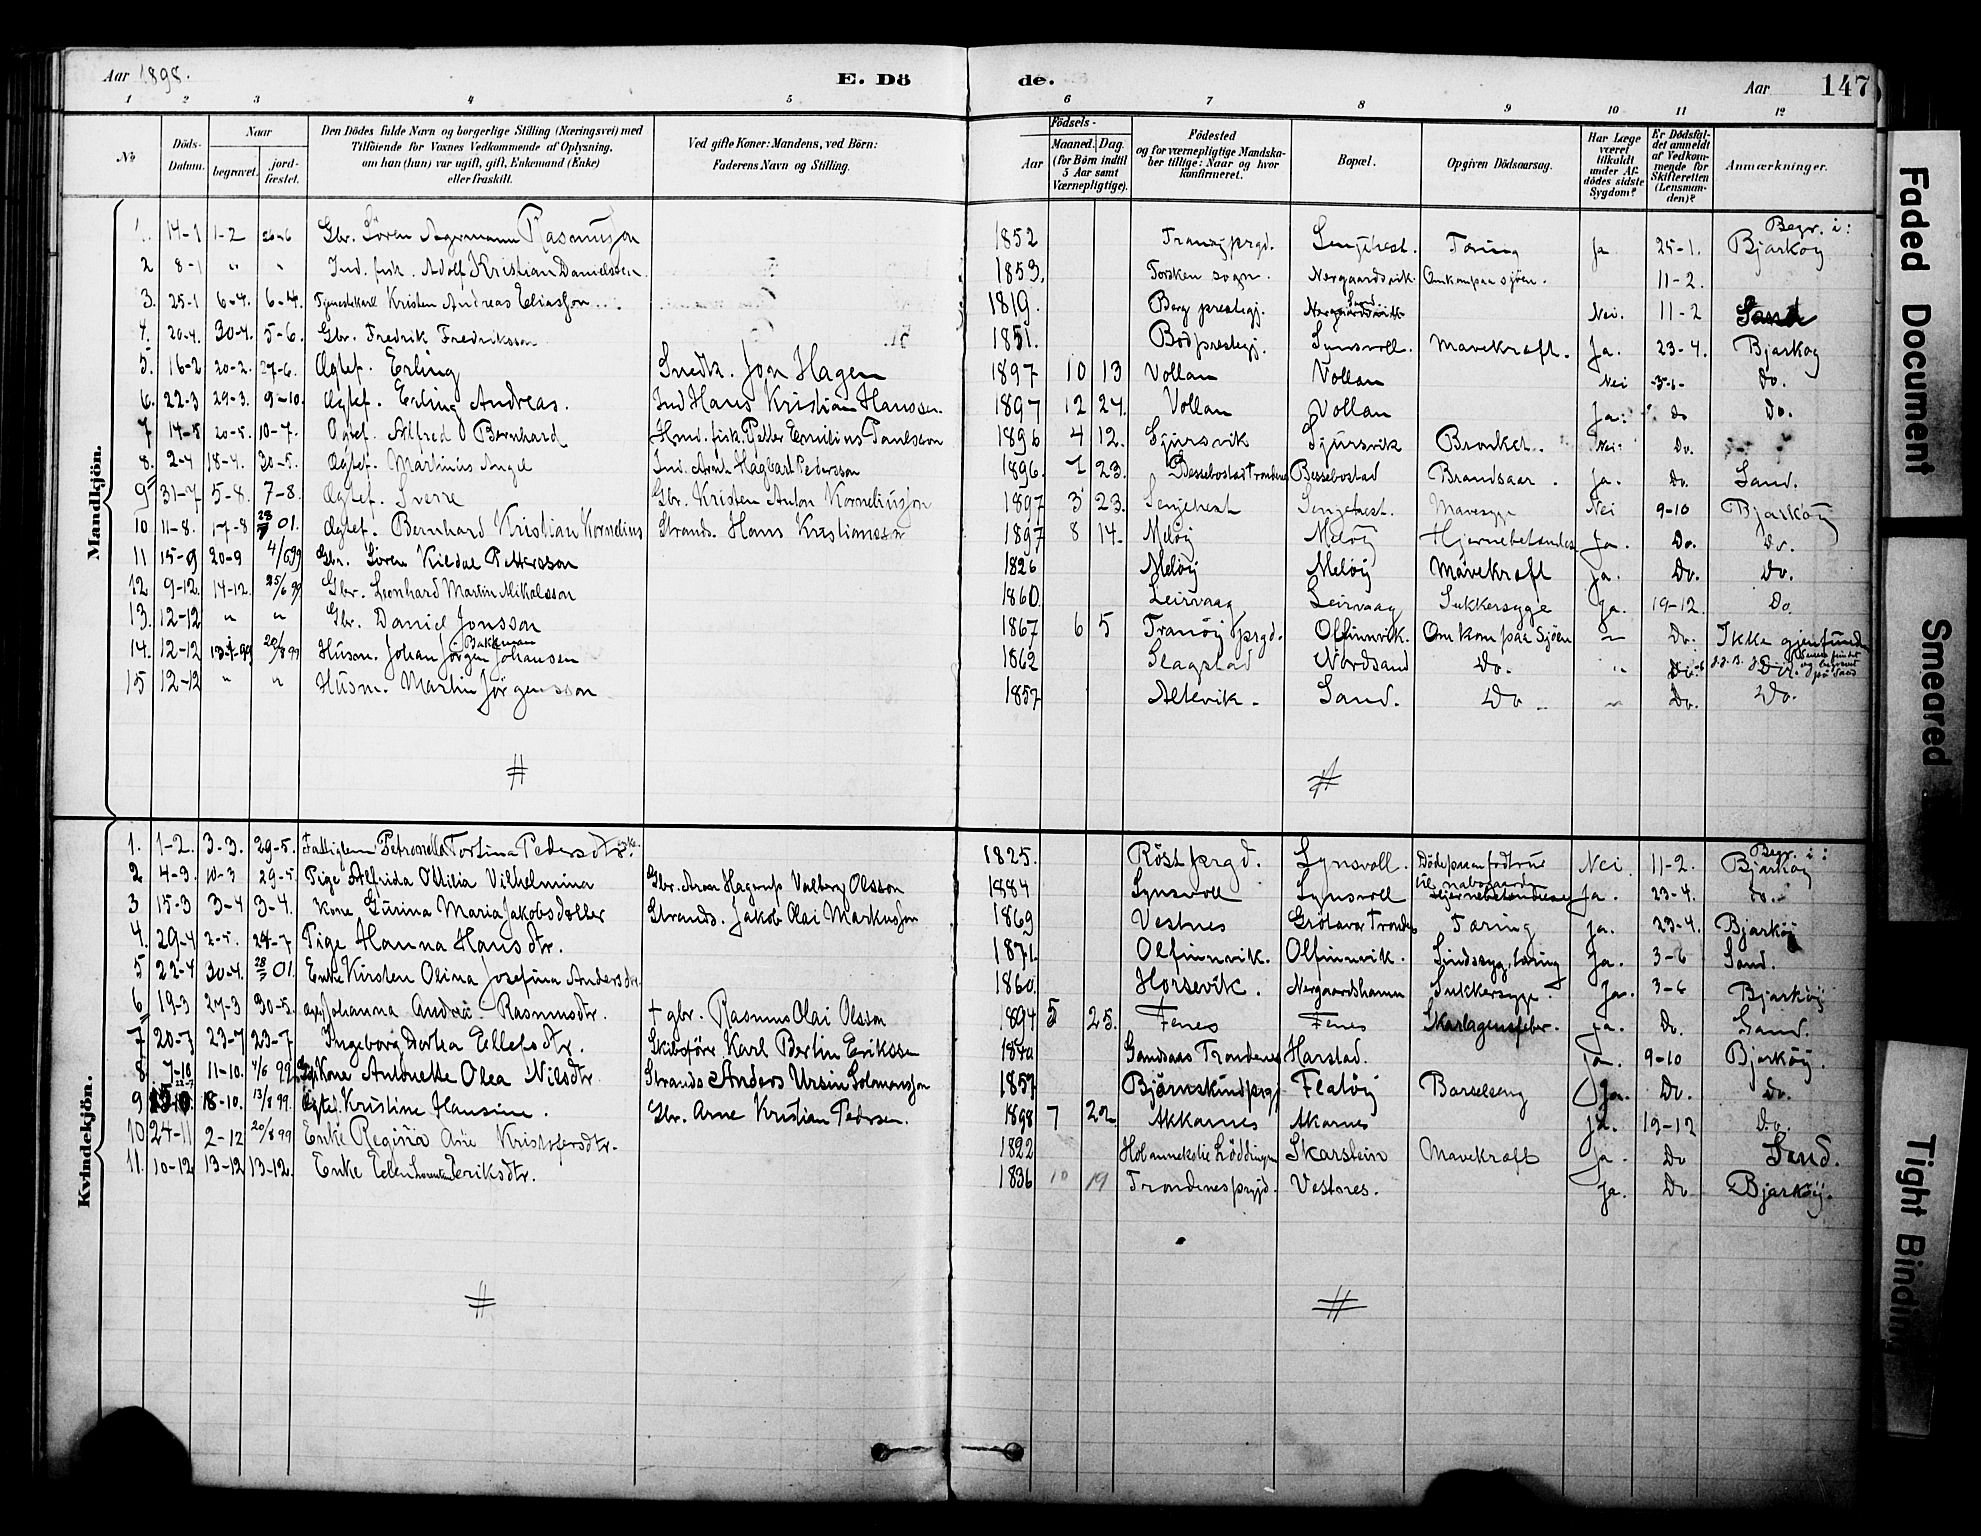 Aar 1898.
E. Dö de.
Aar 147
1 2 3 4 5 6 7 8 9 10 11 12
No.
Döds-Datum.
Naar
begravet.
jord-fæstet.
Den Dödes fulde Navn og borgerlige Stilling (Næringsvei) med
Tilföiende for Voxnes Vedkommende af Oplysning,
om han (hun) var ugift, gift, Enkemand (Enke)
eller fraskilt.
Ved gifte Koner: Mandens, ved Börn:
Faderens Navn og Stilling.
Födsels-
Aar
Maaned. Dag.
(for Börn indtil
5 Aar samt
Værnepligtige).
Födested
og for værnepligtige Mandska-
ber tillige: Naar og hvor
konfirmeret.
Bopæl.
Opgiven Dödsaarsag.
Har Læge
været
tilkaldt
under Af-
dödes sidste
Sygdom?
Er Dödsfal-
det anmeldt
af Vedkom-
mende for
Skifteretten
(Lensman-
den)?
Anmærkninger.
Mandkjön.
Begr. i:
1. 14-1 1-2 26-6 Gbr. Sören Angermann Rasmussen 1852 Tranöy prgd. Senjehest. Tæring Ja 25-1. Bjarköy
2 8-1 " " Ind. fisk. Adolf Kristian Danielssen 1853. Torsken sogn. Nergaardsvik Omkom paa sjöen. 11-2.
3. 25-1 6-4. 6-4. Tjenestekarl Kristen Andreas Eliassen 1819. Berg prestegj. Nergaardsvik Sand Nei. 11-2 Sand
4. 20-4. 30-4. 5-6. Gbr. Fredrik Fredriksson 1851. Bod prestegj. Lynsvoll. Mavekræft. Ja. 23-4. Bjarköy
5. 16-2 20-2. 27-6. Ægtef. Erling Snedk. Jon Hagen 1897 10 13 Vollan Vollan Nei Do.
6. 22-3 29-3. 9-10. Ægtef. Erling Andreas. Ind Hans Kristian Hanssen. 1897 12 24. Vollan Vollan Ja. Do Do.
7 14-5 20-5. 10-7. Ægtef. Alfred Bernhard fisk. Petter Emilius Paulsson 1896 4 12. Gjursvik Gjursvik Bronket. Nei. Do.
8. 2-4 18-4. 30-5. Ægtef. Martinus Angel Ind. Arnt Hagbart Pedersson 1896. 1 23. Bessebostad Trondenes Bessebostad Brandsaar. Ja. Do. Sand.
9 31-7 5-8. 7-8. Ægtef. Sverre Gbr. Kristen Anton Korneliussen 1897 3 23. Senjehest Senjehest. Mavesyge Nei 9-10 Bjarköy
10 11-8. 17-8 28 01. Ægtef. Bernhard Kristian Kornelius Strands. Hans Kristiansson 1897 8 14. Melöy Melöy Hjernebetændelse Ja. Do. Do.
11 15-9 20-9 4/6 99 Gbr. Sören Kildal Pettersson 1826 Melöy Melöy Mavekræft Ja. Do. Do.
12 9-12. 14-12. 25/6 99 Gbr. Leonhard Martin Mikalsson 1860. Leirvaag Leirvaag Sukkersyge Ja. 19-12. Do
13. 12-12 " " Gbr. Daniel Jonsson 1867 6 5 Tranöy prgd. Olfinnvik. Omkom paa Sjöen " Do. Ikke gjenfunden
14. 12-12 20/8 99 Husm. Johan Jörgen Bakkman Johansen 1862 Slagstad Nordsand Do. " Do. Senere fundet og begravet på Sand
15 12-12 " " Husm. Martin Jörgensson 1857 Altevik. Sand. Do " Do. Do.
Kvindekjön.
Begr. i:
1. 1-2. 3-3. 29-5. Fattiglem Petronella Tortina Pedersdtr. enke. 1825. Röst prgd. Lynsvoll. Döde paa en fodtur til nabogaarden Nei. 11-2. Bjarköy
2 4-3. 10-3 29-5 Pige Alfrida Ottilia Vilhelmina Gbr. Aron Hagerup Valberg Olsson 1884 Lynsvoll Lynsvoll Hjernebetændelse Ja. 23-4. do.
3 15-3 3-4 3-4. Kone Gurina Maria Jakobsdatter Strands. Jakob Olai Markussen 1869 Vestnes Grötavær Trondes Tæring Ja. 23-4. Bjarköy
4. 29-4 2-5. 24-7 Pige Hanna Hansdtr. 1871. Olfinnvik. Olfinnvik. Sindssyg, tæring Ja. 3-6 Sand.
5 22-4 30-4. 28 01. Enke Kirsten Olina Josefina Andersdtr. 1860. Horsevik. Nergaardshamn Sukkersyge. Ja. 3-6 Bjarköy
6 19-3 27-3 30-5. Johanna Andrea Rasmusdtr. † gbr. Rasmus Olai Olsson 1894 5 25. Fenes Fenes Skarlagensfeber. Ja. Do. Sand.
7 20-7 23-7 23-7. Ingeborg Dortea Ellefsdtr. Skibsförer Karl Bertin Erikssen 1840 Gandsaas Trondenes Harstad. Ja. 9-10 Bjarköy.
8. 7-10 11-10. 4/6 99 Kone Antonette Olea Nilsdtr. Strands Anders Ursin Salomonssen 1857 Björnskind prgj Flatöy Barselseng Ja. Do. Do.
9 18-10. 13/8 99. Ægtef. Kristine Hansine. Gbr. Arne Kristian Pedersen. 1898 7 22 Akkarnes Akarnes Ja. 19-12 Do.
10 24-11 2-12 20/8 99 Enke Regina Ane Kristoffersdtr. 1822 Skarstein Mavekræft Ja. Do Sand.
11. 10-12 13-12 13-12. Enke Ellen Lorentse Eriksdtr. 1836 10 19 Trondenes prgjd. Vestnes. Ja. Do Bjarköy.
Faded Document
Smeared
Tight Binding